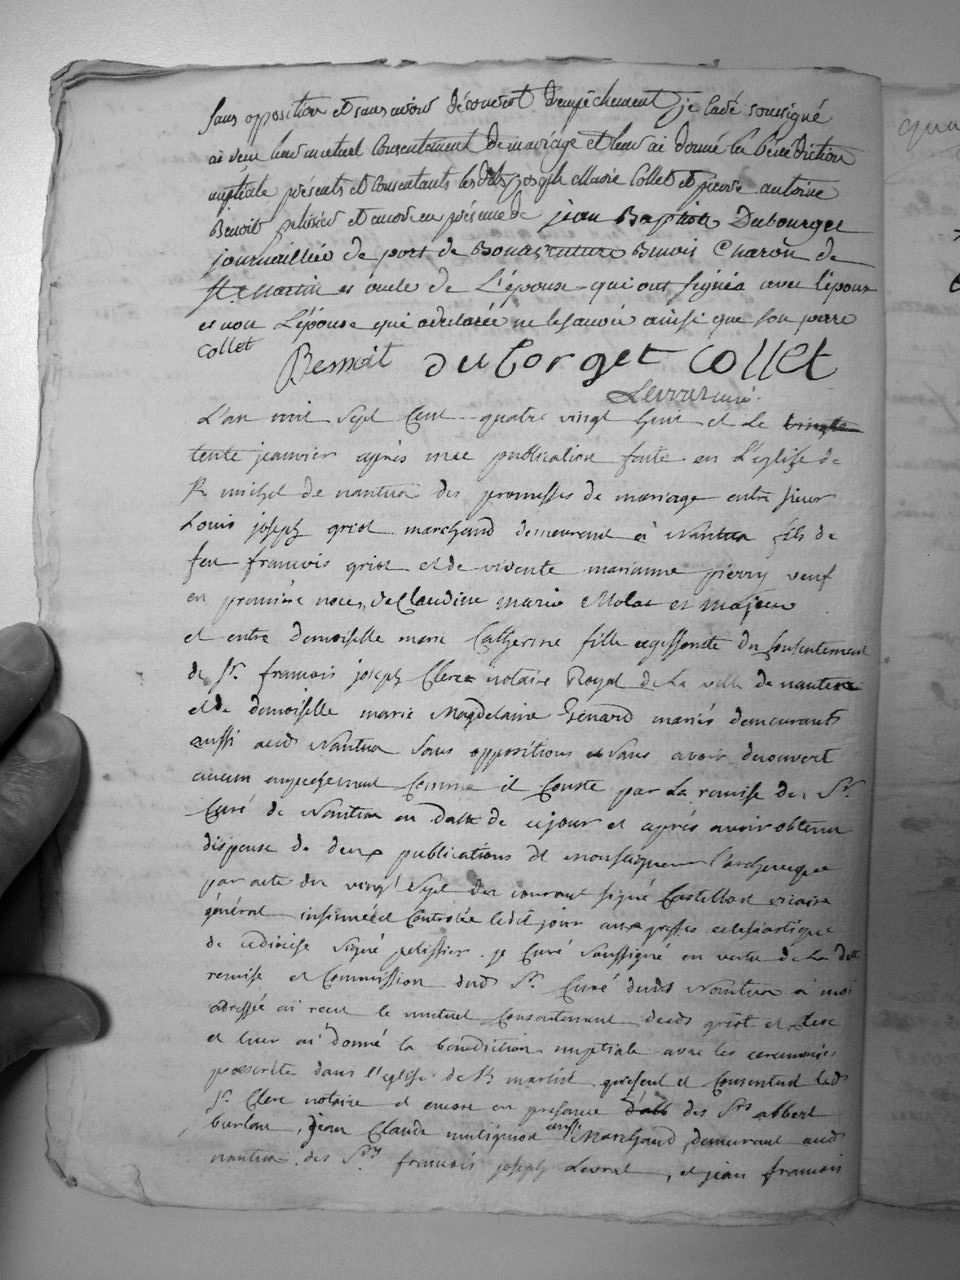 sans opposition et sans avoir découvert dempêchement je curé soussigné
ai reçu leur mutuel Consentement de mariage et leur ai donné la bénédiction
nuptiale présents et Consentants les dits joseph Marie Collet et pierre antoine
Benoit et encore en présence de jean Baptiste Dubourget
journaillier de port de Benoit Charon de
St. Martin et oncle de L'épouse qui ont signés avec l'époux
et non L'épouse qui a declarée ne le savoir ainsi que son
Collet
Benoit du borget Collet
Levrat curé
L'an mil sept Cent quatre vingt huit et Le
trente jeanvier après une publication faite en L'eglise de
St michel de nantua des promesses de mariage entre sieur
Louis joseph griot marchand demeurant à Nantua fils de
feu francois griot et de vivente marianne pierry veuf
en première noces de Claudine marie Molat et majeur
et entre demoiselle marie Catherine fille agissante du Consentement
de Sr. francois joseph Clerc notaire Royal de La ville de nantua
et de demoiselle marie Magdelaine Genard mariés demeurants
aussi aud Nantua sans oppositions et sans avoir decouvert
aucun empechement Comme il Conste par La remise de Sr.
Curé de Nantua en datte de ce jour et après avoir obtenu
dispense de deux publications de monseigneur l'archeveque
par acte du vingt sept du courant signé Castellas vicaire
général insinuée et Controlée ledit jour aux greffes eclesiastique
de ce diocise signé pelissier. je Curé soussigné en vertu de La de
remise et Commission dud Sr. Curé dudit Nantua a moi
adressée ai recu le mutuel Consentement desds griot et Clerc
et leur ai donné la benediction nuptiale avec les ceremonies
prescrite dans l'eglise de St martin present et Consentant led
Sr. Clerc notaire et encore en presance des Srs abbert
burlan, jean Claude aussi Marchand demeurant aud
nantua. des Srs francois joseph Levrat, et jean francois